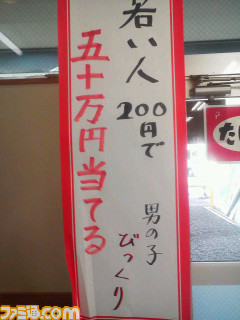 若い人
200円で
男の子
びっくり
五十万円当てる
た
ファミ通.com